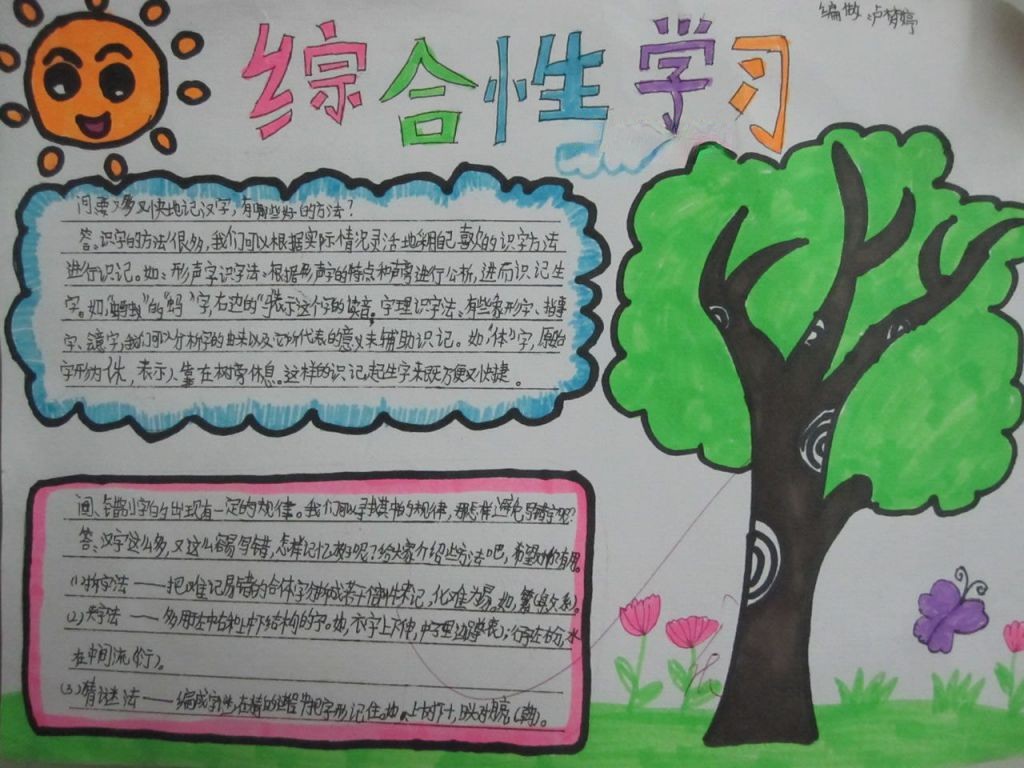 编做:卢梦婷
综合性学习
问:要又多又快地记汉字,有哪些好的方法?
答:识字的方法很多,我们可以根据实际情况灵活地采用自己喜欢的识字方法
进行识记。如:形声字识字法:根据形声字的特点和声旁进行分析,进而识记生
字。如,"蚂蚁"的"蚂"字,右边的"马"表示这个字的读音。字理识字法:有些象形字、指事
字、会意字,我们可以分析字的由来以及它所代表的意义来辅助识记。如,"休"字,原始
字形为 ,表示人靠在树旁休息。这样的识记起生字来既方便又快捷。
问:错别字的出现有一定的规律。我们可以寻找其中的规律,那怎样避免写错字呢?
答:汉字这么多,又这么容易写错,怎样记忆好呢?给大家介绍些方法吧,希望对你有用。
(1)拆字法——把难记易错的合体字拆成若干个部件来记,化难为易。如,繁(每攵糸)。
(2)夹字法——多用左中右和上中下结构的字。如,衣字上下伸,中字里边蹲(衷);行字左右分,水
在中间流(衍)。
(3)猜谜法——编成字谜,在猜的过程中把字形记住。如,上树下寸,